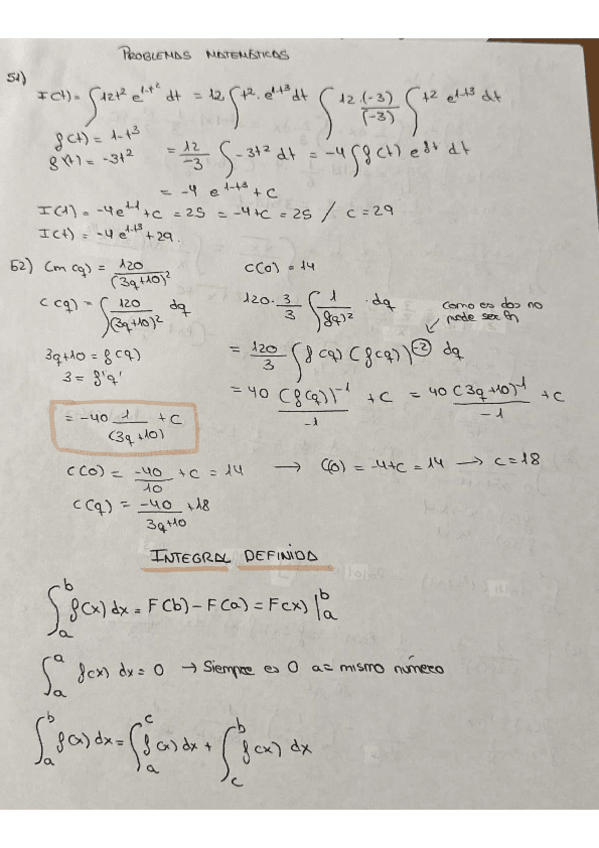 PROBLEMAS MATEMÁTICOS
51)
I(t) = ∫ 12t² e^(1-t²) dt = 12 ∫ t² · e^(1-t³) dt ∫ 12 · (-3)/(-3) ∫ t² e^(1-t³) dt
f(t) = 1-t³
f'(t) = -3t² = 12/-3 ∫ -3t² dt = -4 ∫ f(t) e^(ft) dt
= -4 e^(1-t³) + c
I(1) = -4e^(1-1) + c = 25 = -4+c = 25 / c = 29
I(t) = -4e^(1-t³) + 29.
52) Cm(q) = 120/(3q+10)² C(0) = 14
C(q) = ∫ 120/(3q+10)² dq 120 · 3/3 ∫ 1/f(q)² · dq como es dos no puede ser ln
3q+10 = f(q) = 120/3 ∫ f(q) (f(q))^(-2) dq
3 = f'q'
= 40 (f(q))^-1/-1 + C = 40 (3q+10)^-1/-1 + C
= -40 1/(3q+10) + C
C(0) = -40/10 + C = 14 → C(0) = -4+C = 14 → C = 18
C(q) = -40/3q+10 + 18
INTEGRAL DEFINIDA
∫_a^b f(x) dx = F(b) - F(a) = F(x) |_a^b
∫_a^a f(x) dx = 0 → Siempre es 0 a = mismo número
∫_a^b f(x) dx = ∫_a^c f(x) dx + ∫_c^b f(x) dx